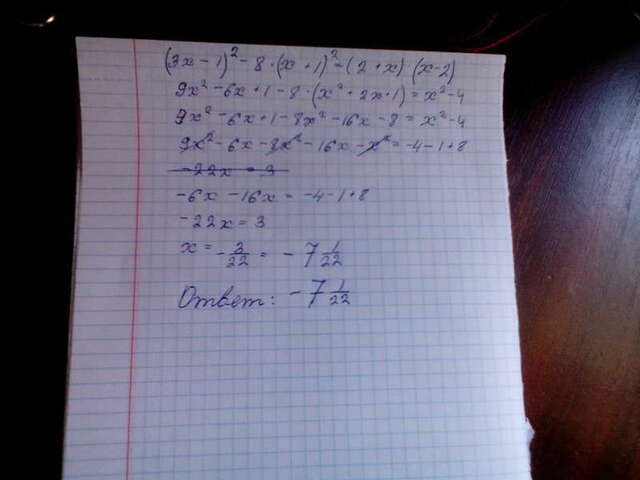 (3x - 1)² - 8 · (x + 1)² = (2 + x) · (x - 2)
9x² - 6x + 1 - 8 · (x² + 2x + 1) = x² - 4
9x² - 6x + 1 - 8x² - 16x - 8 = x² - 4
9x² - 6x - 8x² - 16x - x² = -4 - 1 + 8
-22x = 3
-6x - 16x = -4 - 1 + 8
-22x = 3
x = -3/22 = -7 1/22
Ответ: -7 1/22